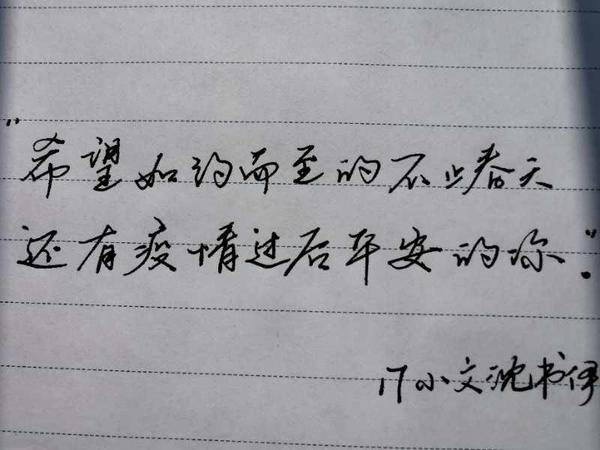 "希望如约而至的不止春天
还有疫情过后平安的你."
17小文沈书伊